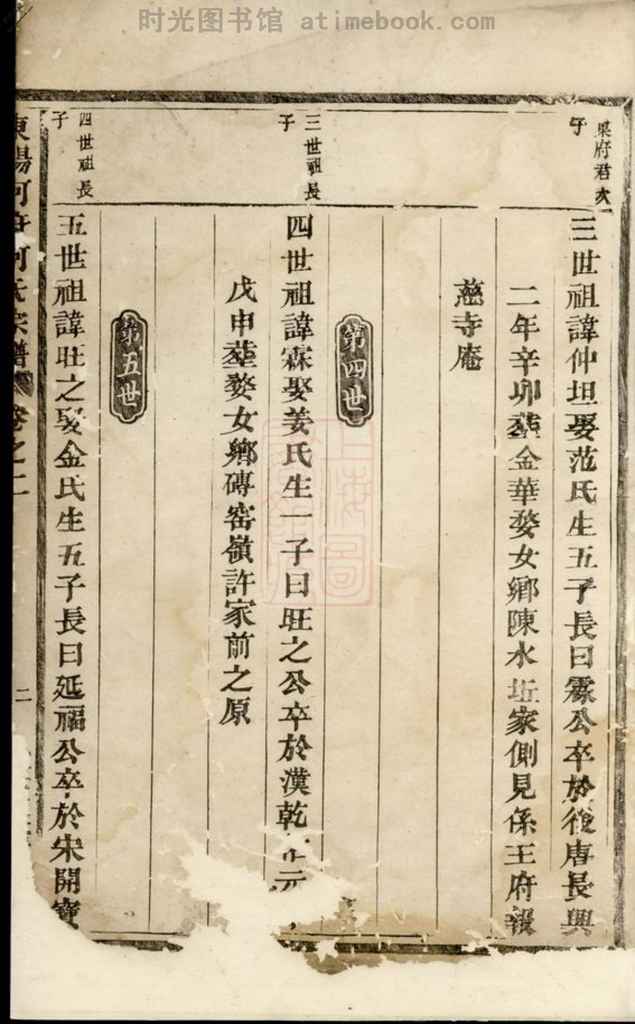 时光图书馆 atimebook.com
府君次
子
三世祖諱仲坦娶范氏生五子長曰霖公卒於後唐長興
二年辛卯葬金華婺女鄉陳水坵家側見係王府報
慈寺庵
第四世
三世祖長
子
四世祖諱霖娶姜氏生一子曰旺之公卒於漢乾元
戊申葬婺女鄉磚窑嶺許家前之原
第五世
四世祖長
子
五世祖諱旺之娶金氏生五子長曰延福公卒於宋開寶
東陽何府何氏宗譜 卷之二
二